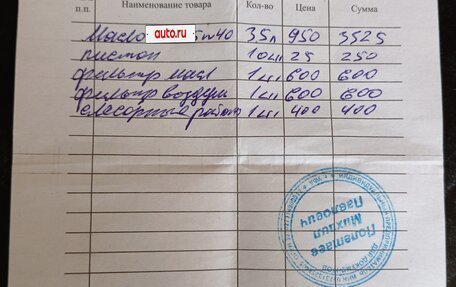 п.п. Наименование товара Кол-во Цена Сумма
Масло auto.ru 5w40 3,5л 950 3525
пистон 10шт 25 250
фильтр масл 1шт 600 600
фильтр воздуш 1шт 600 600
слесарные работы 1шт 400 400
Полетаев
Михаил
Павлович